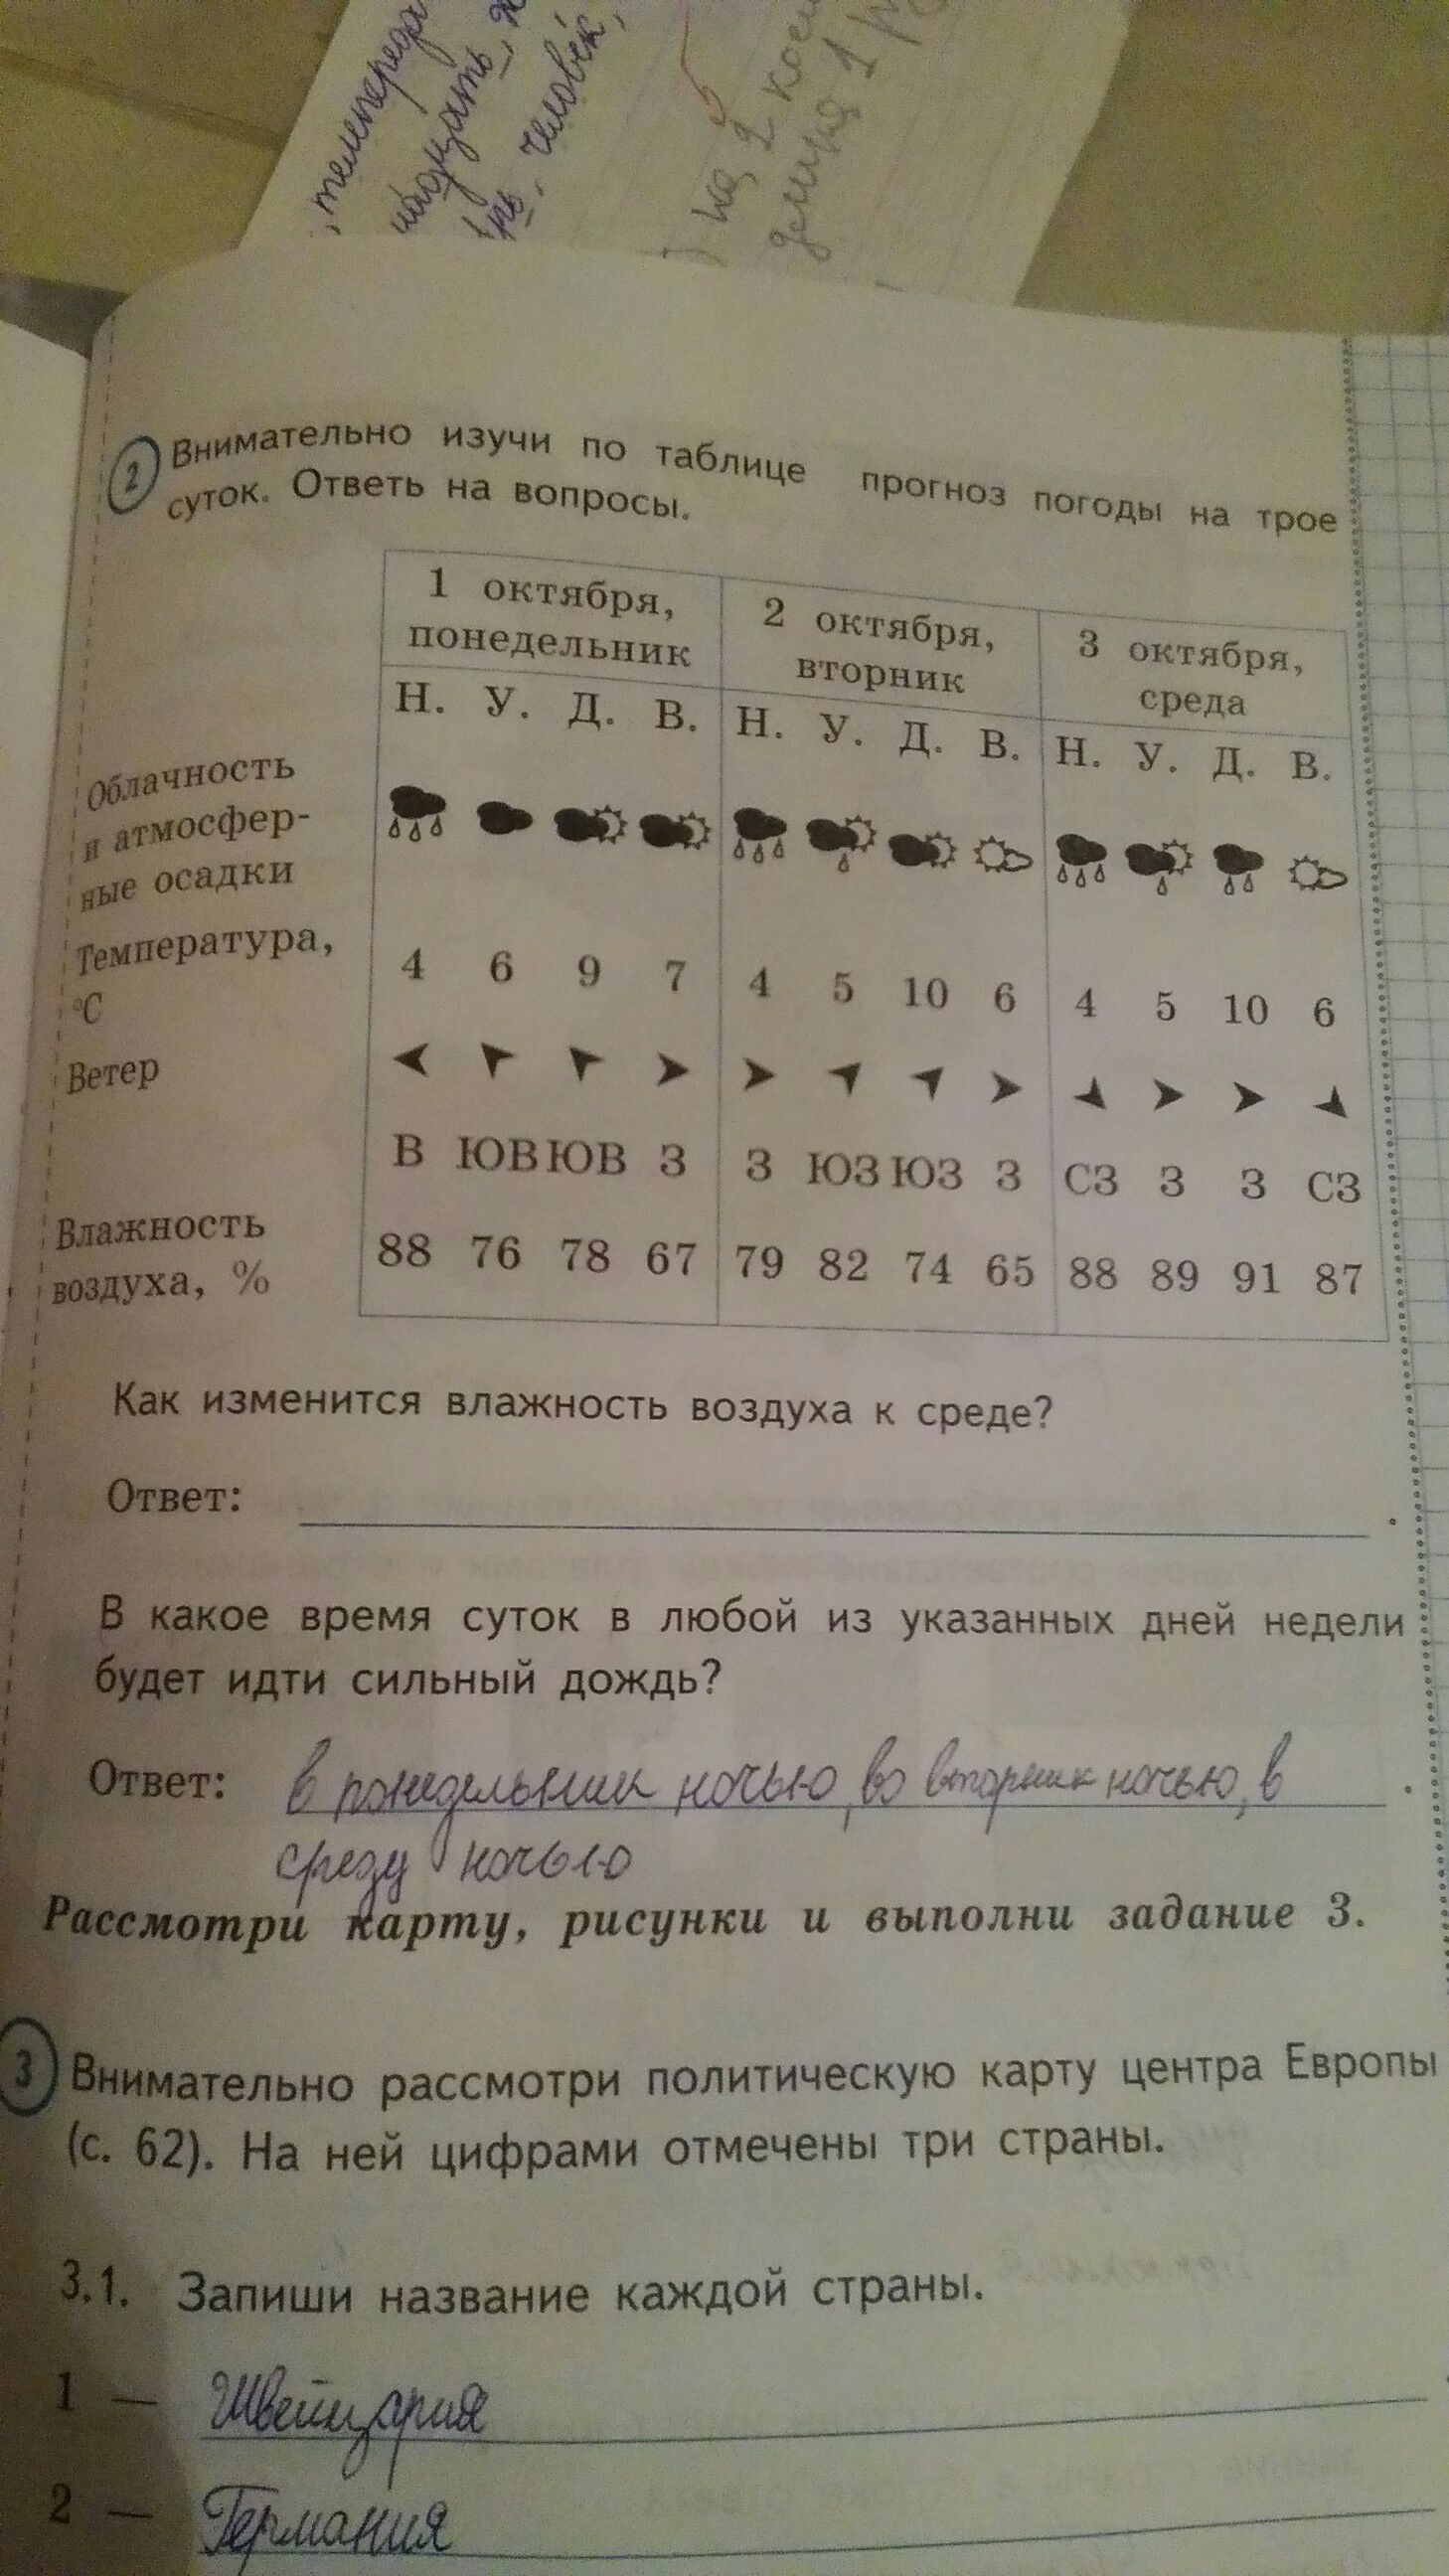 , телепереда
надцать, ж
ть, человек,
на 2 косм
длина 1 р
2 Внимательно изучи по таблице прогноз погоды на трое
суток. Ответь на вопросы.
1 октября, 2 октября, 3 октября,
понедельник вторник среда
Н. У. Д. В. Н. У. Д. В. Н. У. Д. В.
Облачность
и атмосфер-
ные осадки
Температура, 4 6 9 7 4 5 10 6 4 5 10 6
°С
Ветер
В ЮВ ЮВ З З ЮЗ ЮЗ З СЗ З З СЗ
Влажность
воздуха, % 88 76 78 67 79 82 74 65 88 89 91 87
Как изменится влажность воздуха к среде?
Ответ: .
В какое время суток в любой из указанных дней недели
будет идти сильный дождь?
Ответ: в понедельник ночью, во вторник ночью, в .
среду ночью
Рассмотри карту, рисунки и выполни задание 3.
3 Внимательно рассмотри политическую карту центра Европы
(с. 62). На ней цифрами отмечены три страны.
3.1. Запиши название каждой страны.
1 — Швейцария
2 — Германия